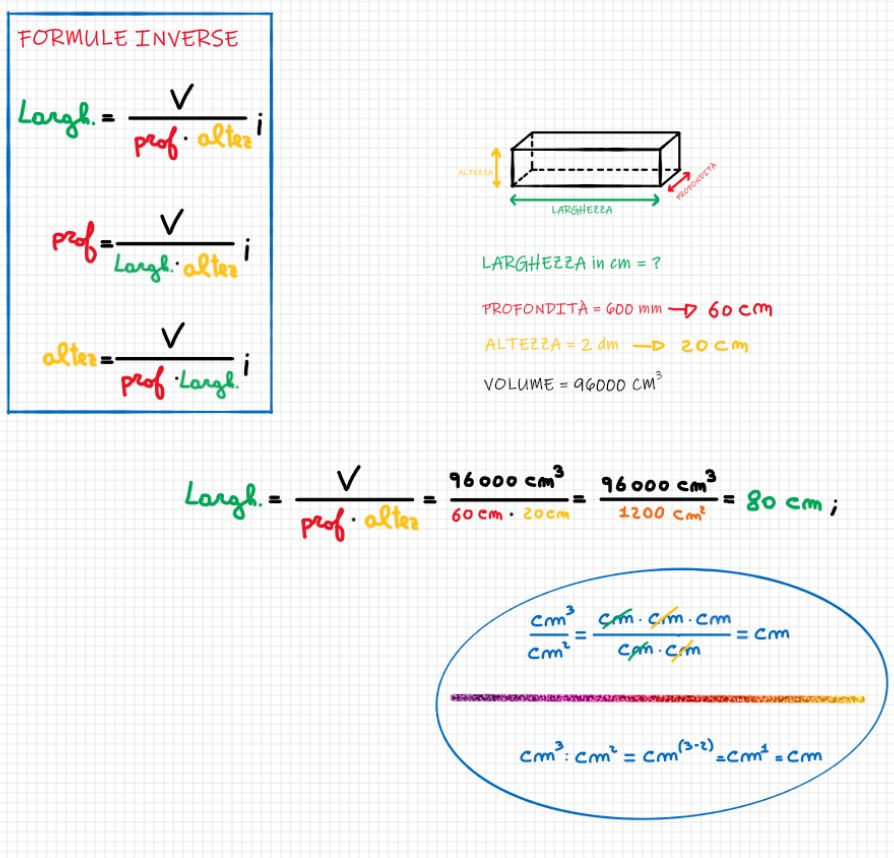 FORMULE INVERSE
Largh. = V / prof · altez ;
prof = V / Largh. · altez ;
altez = V / prof · Largh. ;
ALTEZZA
PROFONDITÀ
LARGHEZZA
LARGHEZZA in cm = ?
PROFONDITÀ = 600 mm → 60 cm
ALTEZZA = 2 dm → 20 cm
VOLUME = 96000 cm³
Largh. = V / prof · altez = 96000 cm³ / 60 cm · 20 cm = 96000 cm³ / 1200 cm² = 80 cm ;
cm³ / cm² = cm · cm · cm / cm · cm = cm
cm³ : cm² = cm⁽³⁻²⁾ = cm¹ = cm